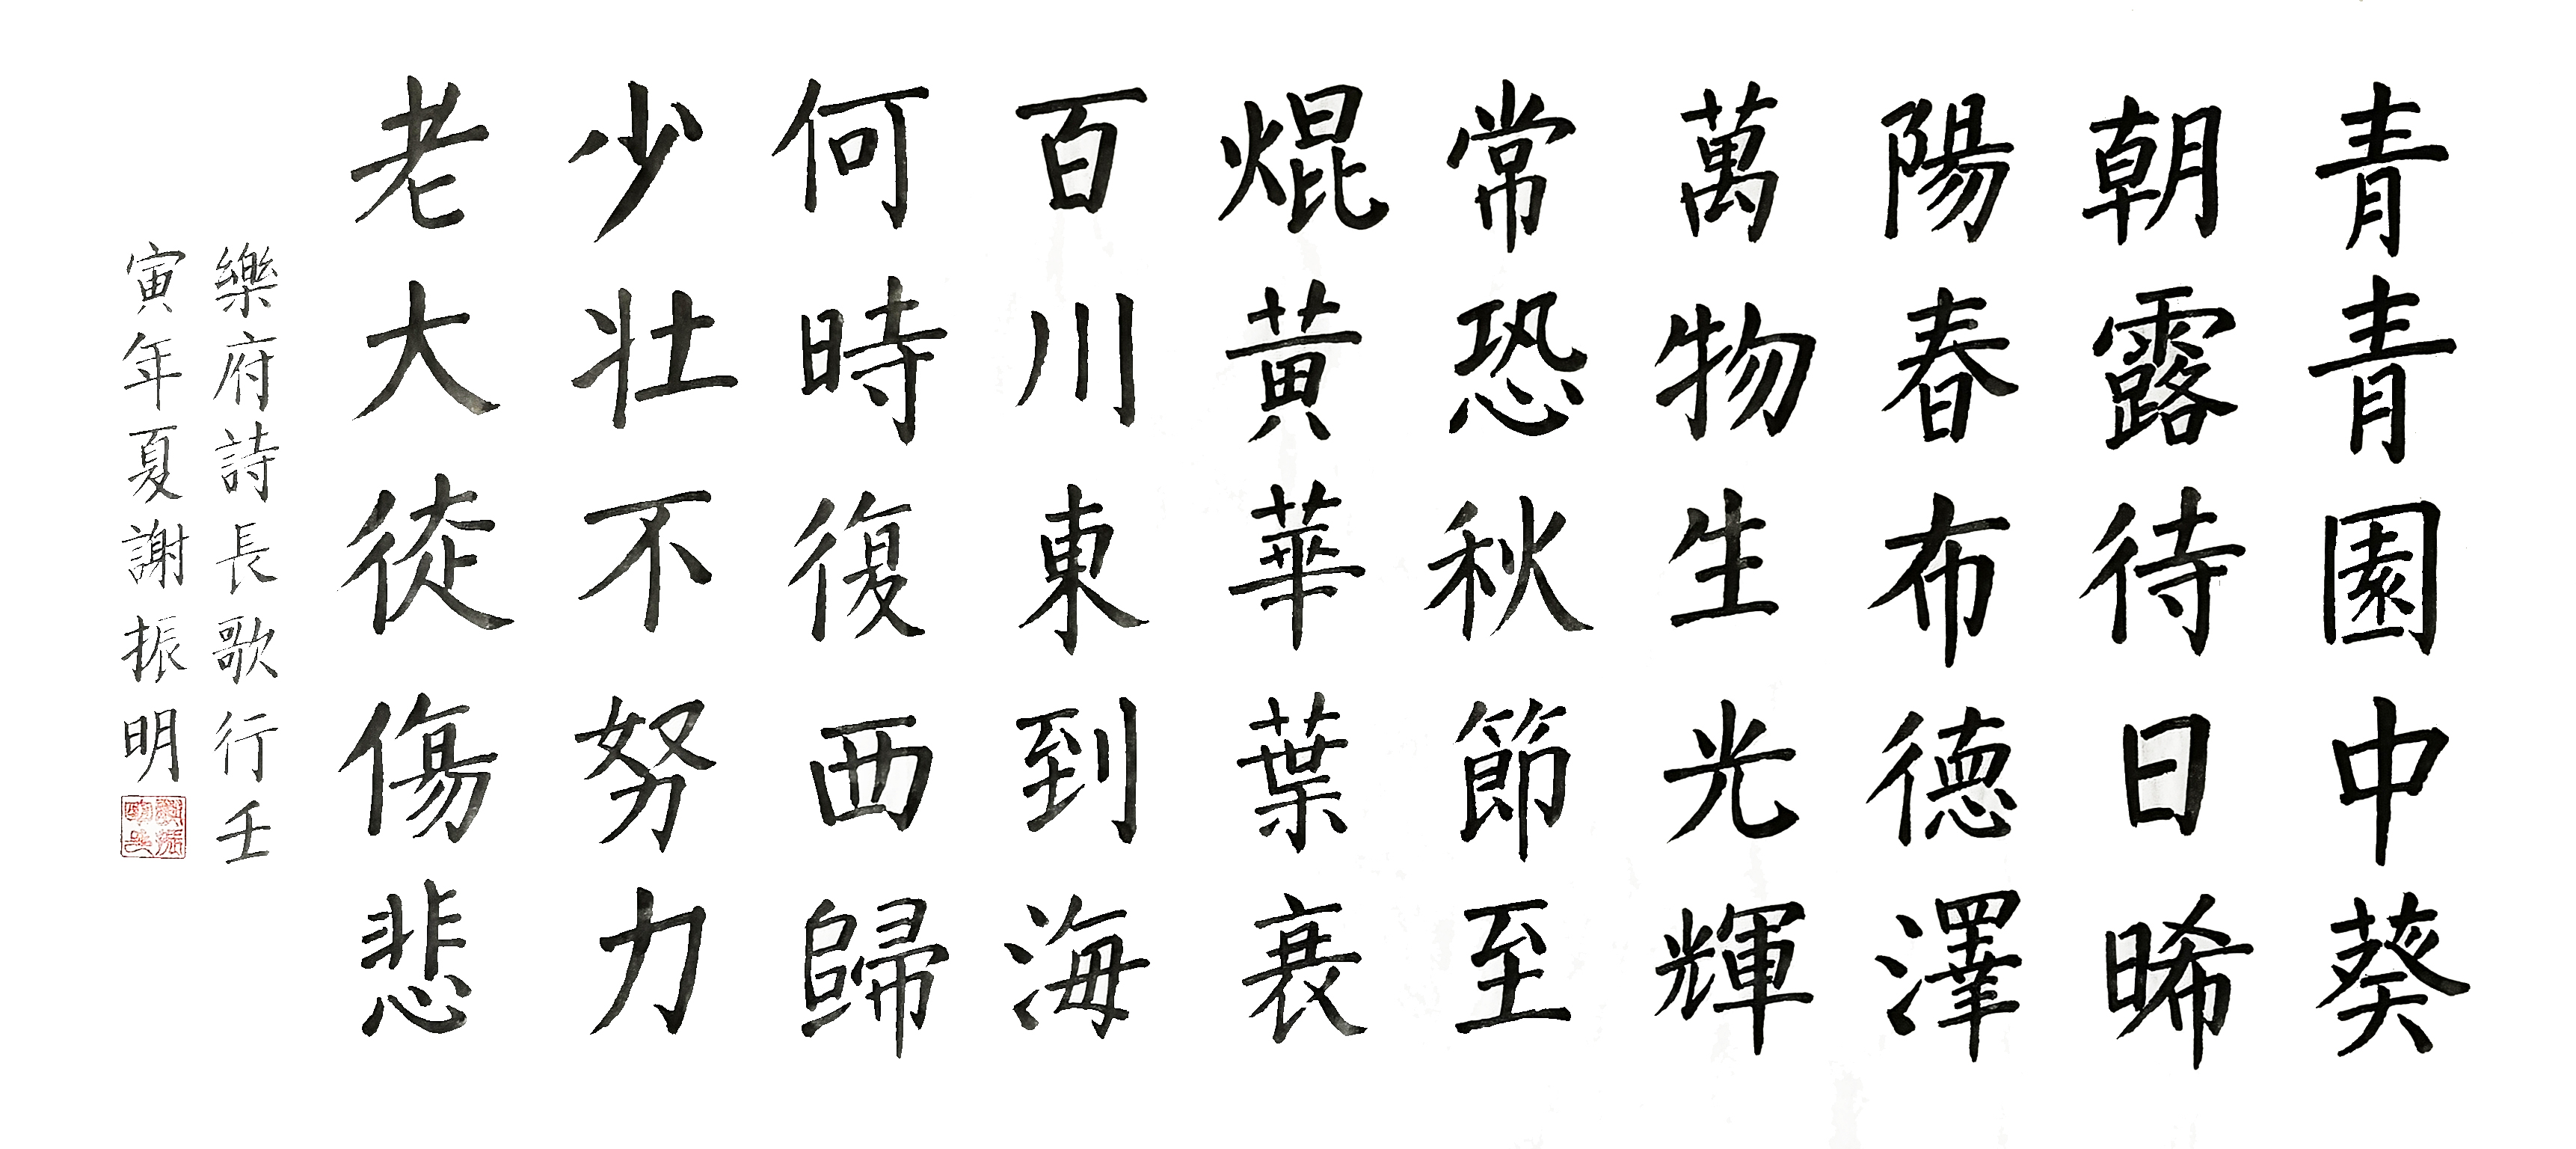 青青園中葵
朝露待日晞
陽春布德澤
萬物生光輝
常恐秋節至
焜黃華葉衰
百川東到海
何時復西歸
少壯不努力
老大徒傷悲
樂府詩長歌行壬
寅年夏謝振明